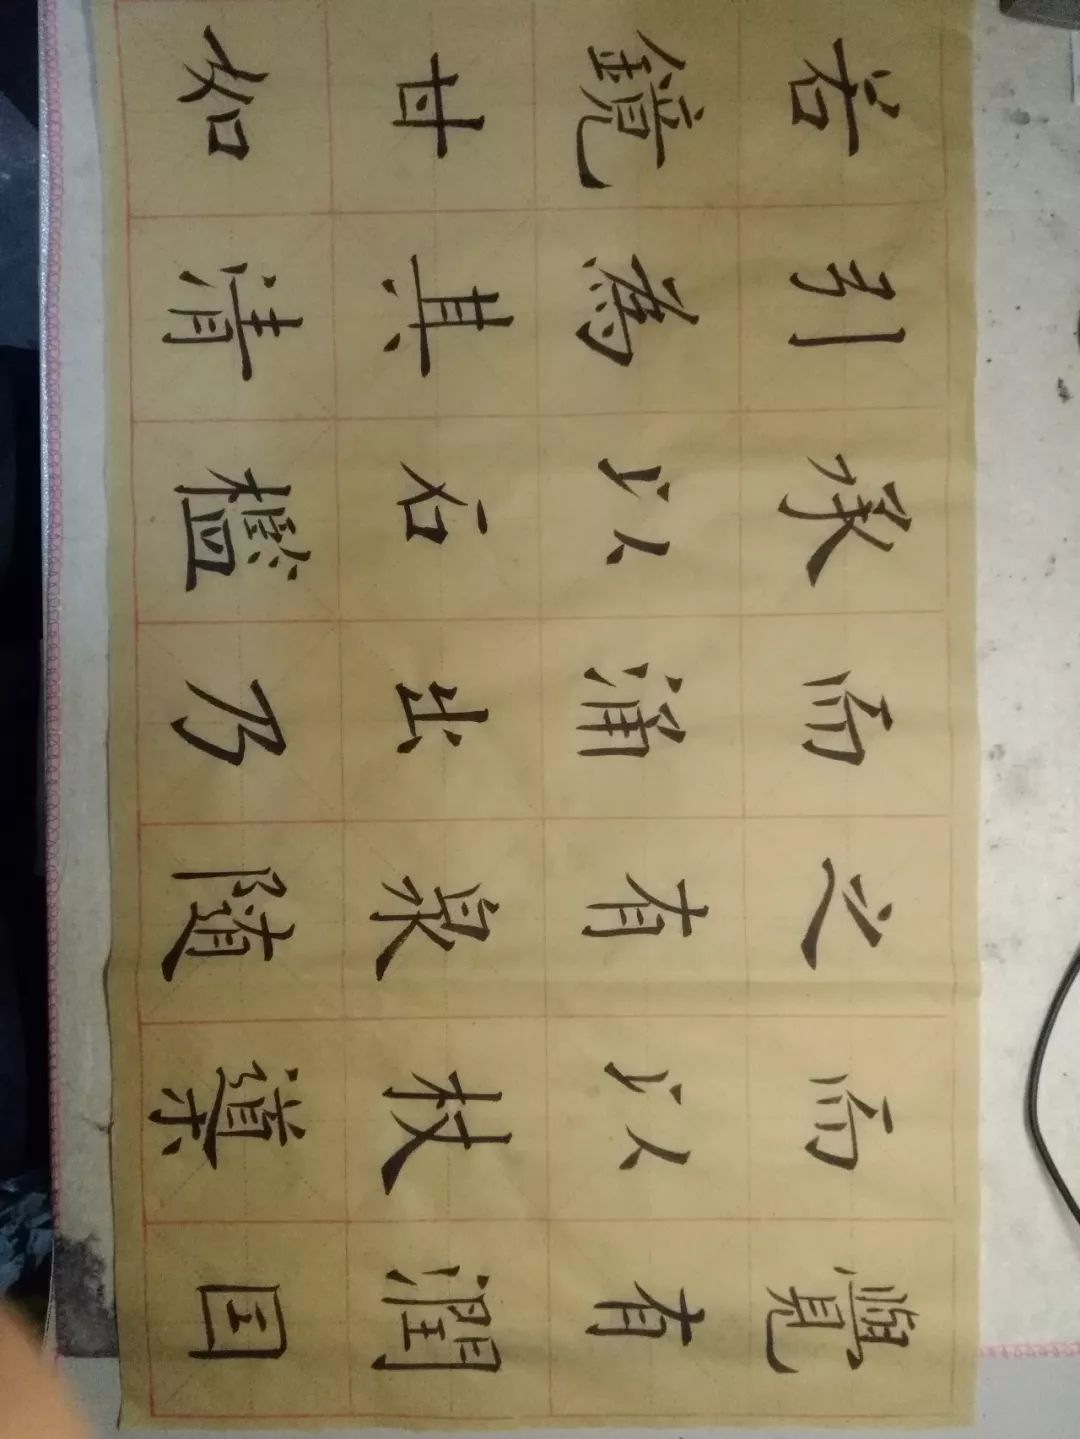 覺有潤因
而以杖導
之有泉隨
而涌出乃
承以石檻
引為其清
若鏡甘如